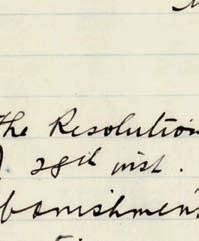 the Resolution
28th inst.
banishment